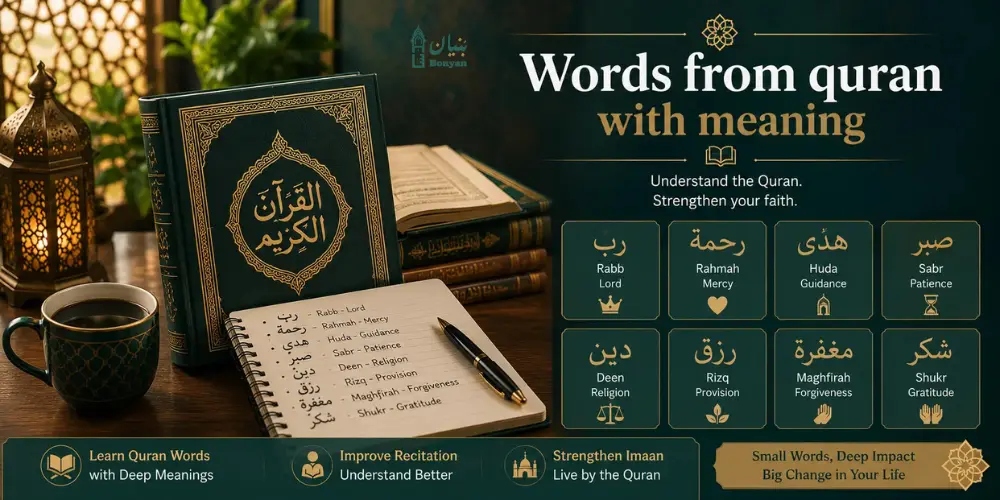 بنيان
Bonyan
Words from quran
with meaning
Understand the Quran.
Strengthen your faith.
القرآن
الكريم
رب - Rabb - Lord
رحمة - Rahmah - Mercy
هدى - Huda - Guidance
صبر - Sabr - Patience
دين - Deen - Religion
رزق - Rizq - Provision
مغفرة - Maghfirah - Forgiveness
شكر - Shukr - Gratitude
رب
Rabb
Lord
رحمة
Rahmah
Mercy
هدًى
Huda
Guidance
صبر
Sabr
Patience
دين
Deen
Religion
رزق
Rizq
Provision
مغفرة
Maghfirah
Forgiveness
شكر
Shukr
Gratitude
Learn Quran Words
with Deep Meanings
Improve Recitation
Understand Better
Strengthen Imaan
Live by the Quran
Small Words, Deep Impact
Big Change in Your Life